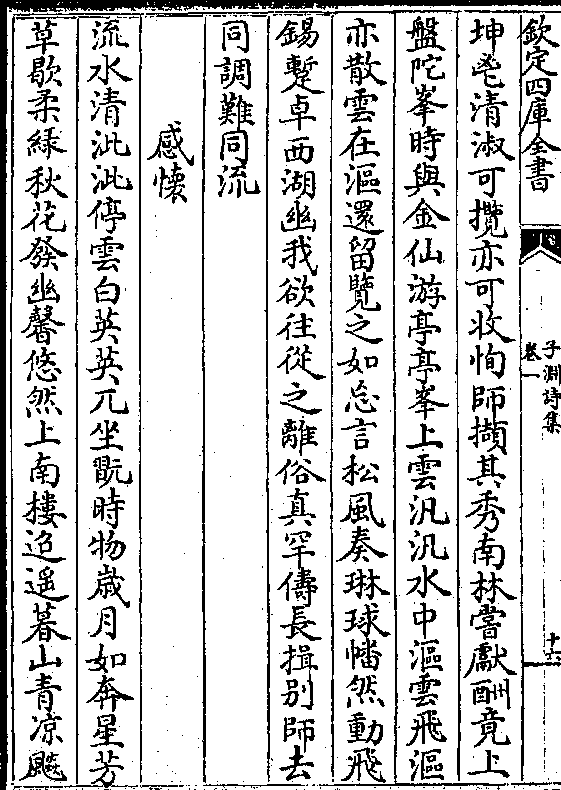 欽定四庫全書
子淵詩集
卷一
十六
坤邑清淑可攬亦可收恂師擷其秀南林嘗獻酬竟上
盤陀峯時與金仙游亭亭峯上雲汎汎水中漚雲飛漚
亦散雲在漚還留覽之如忘言松風奏琳球幡然動飛
錫蹔卓西湖幽我欲往從之離俗真罕儔長揖别師去
同調難同流
感懐
流水清泚泚停雲白英英兀坐翫時物歳月如奔星芳
草歇柔緑秋花發幽馨悠然上南樓迢遥暮山青凉飈